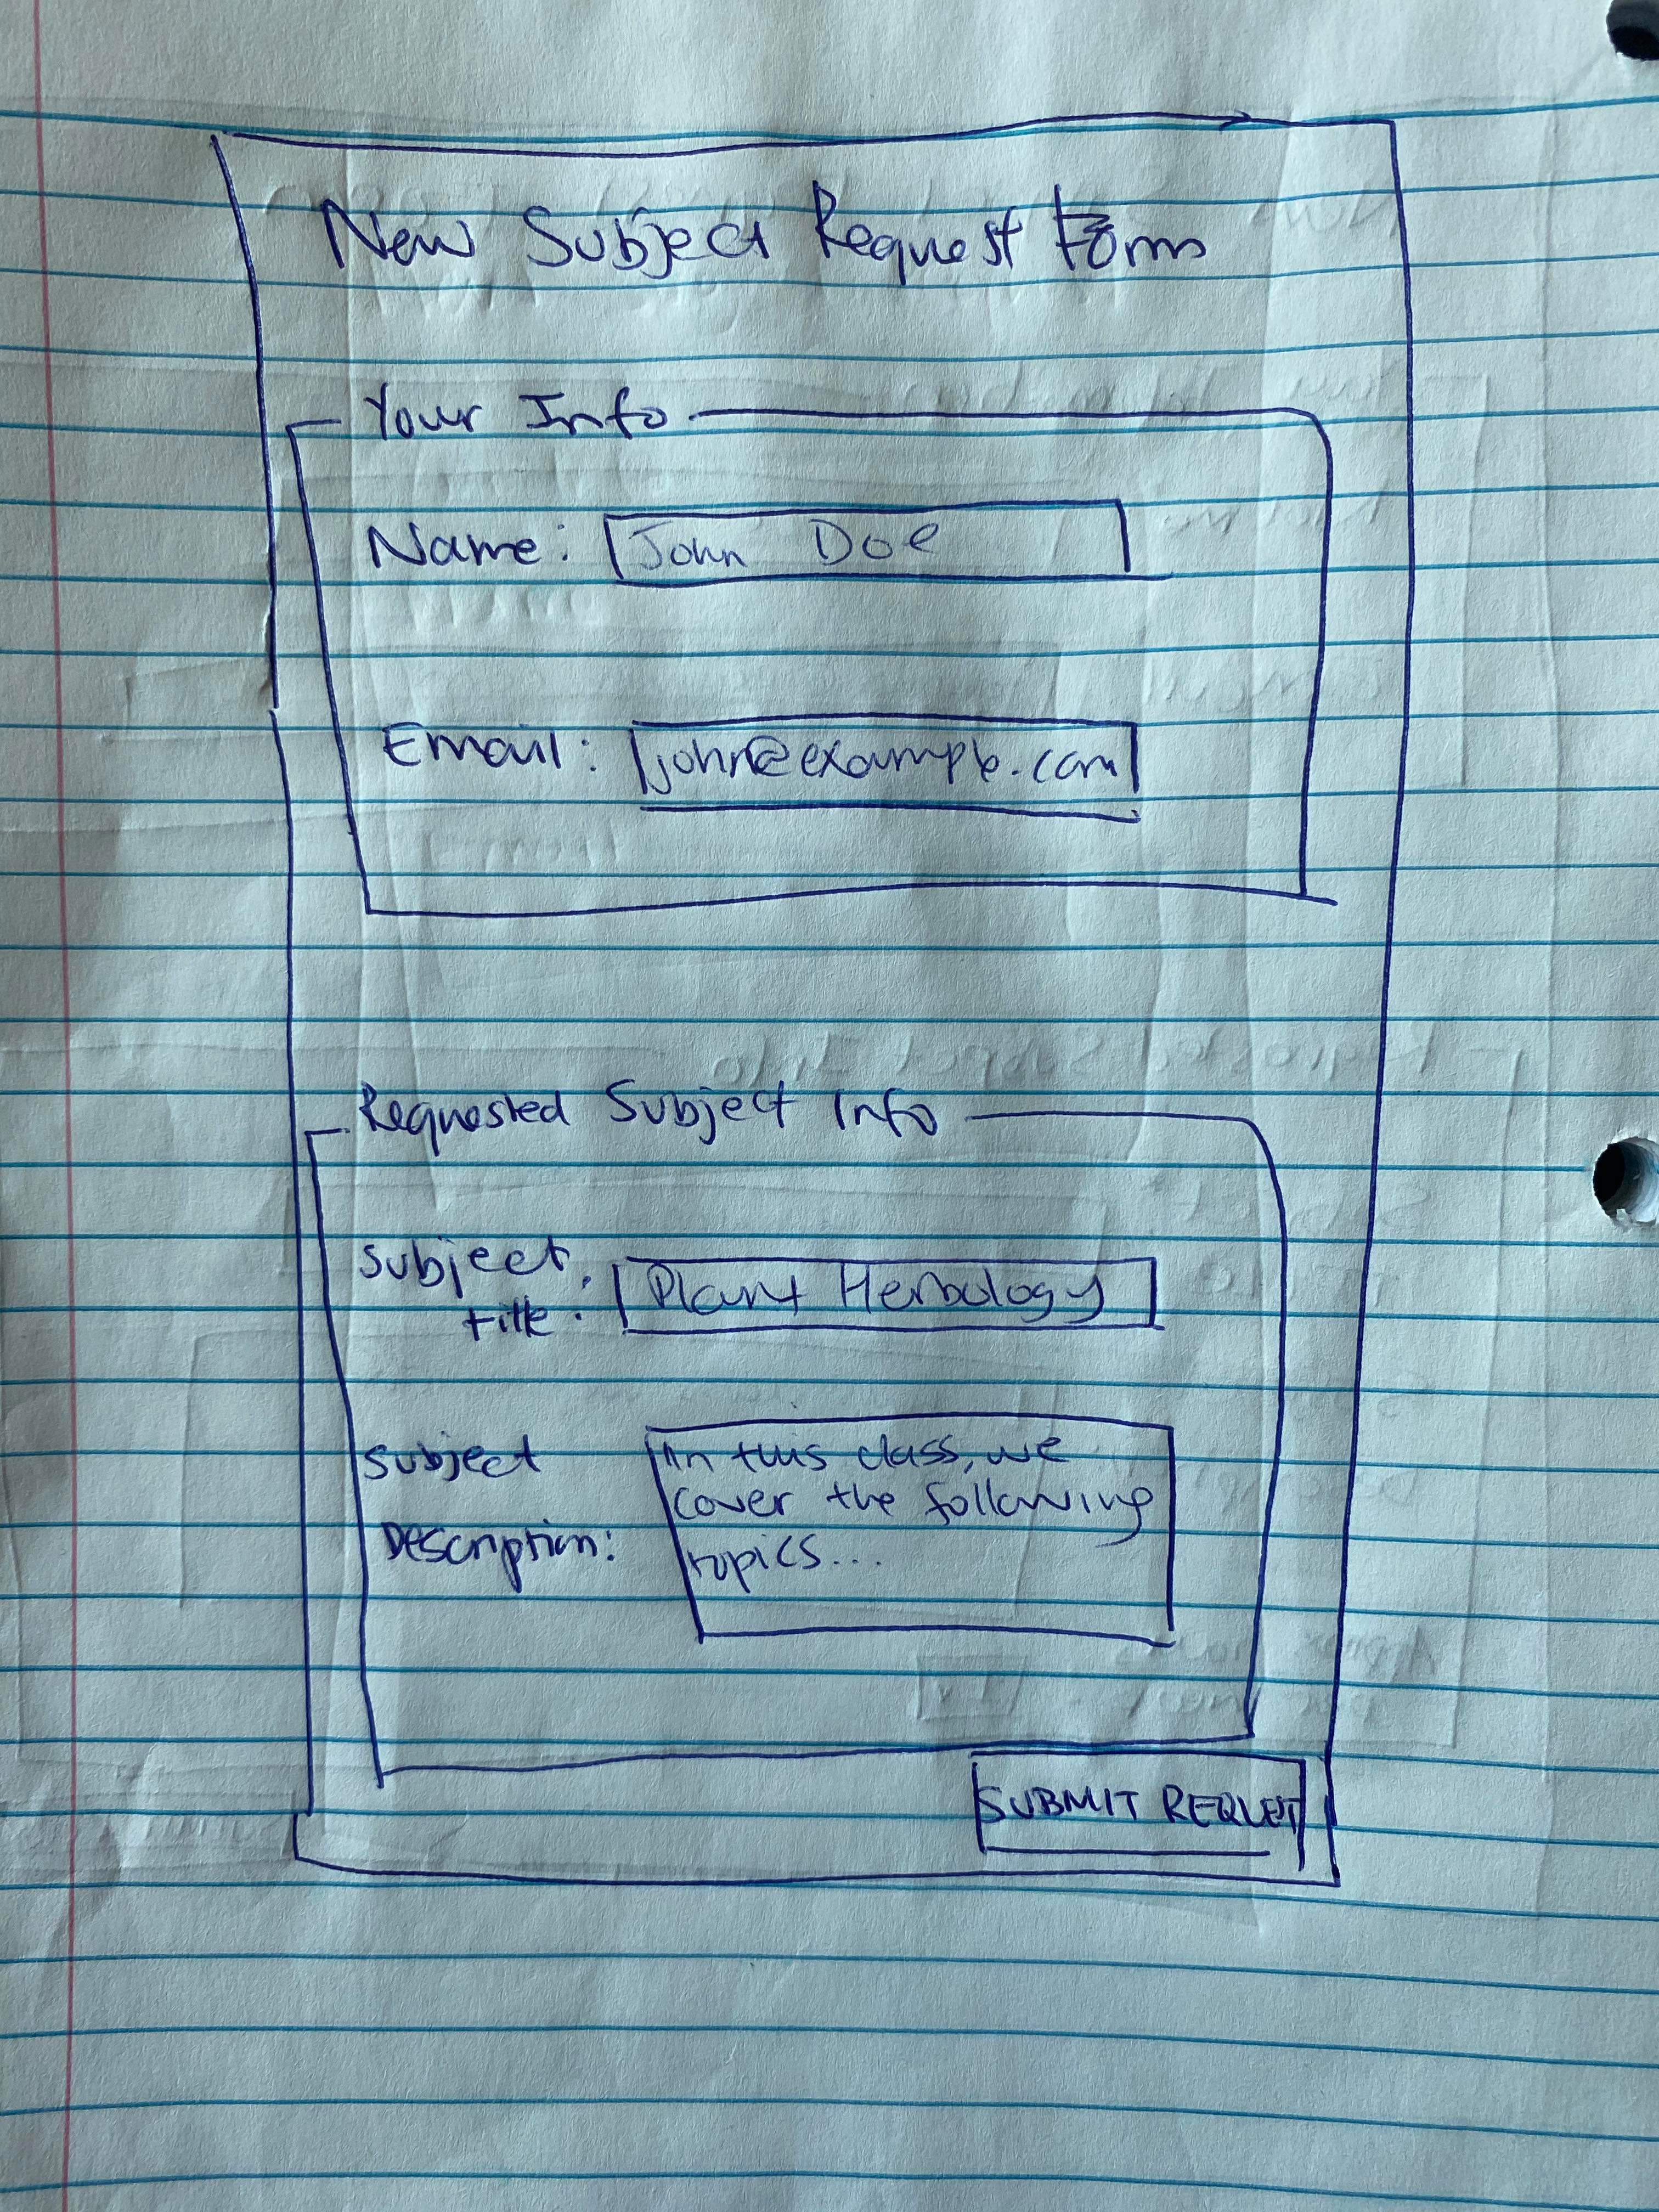 New Subject Request Form
Your Info
Name: John Doe
Email: john@example.com
Requested Subject Info
Subject
title: Plant Herbology
Subject
Description:
In this class, we
cover the following
topics...
SUBMIT